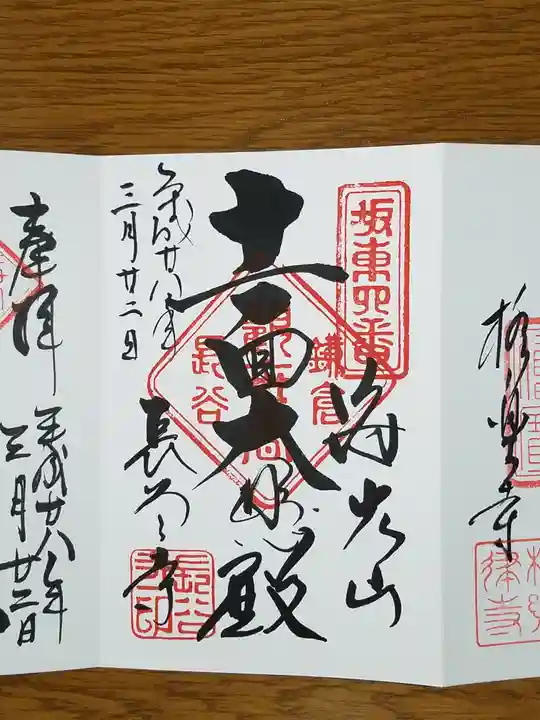 極楽寺
坂東四番
海光山
十一面大悲殿
鎌倉
長谷
平成廿八年
三月廿二日
長谷寺
長谷寺印
奉拝
平成廿八年
三月廿二日